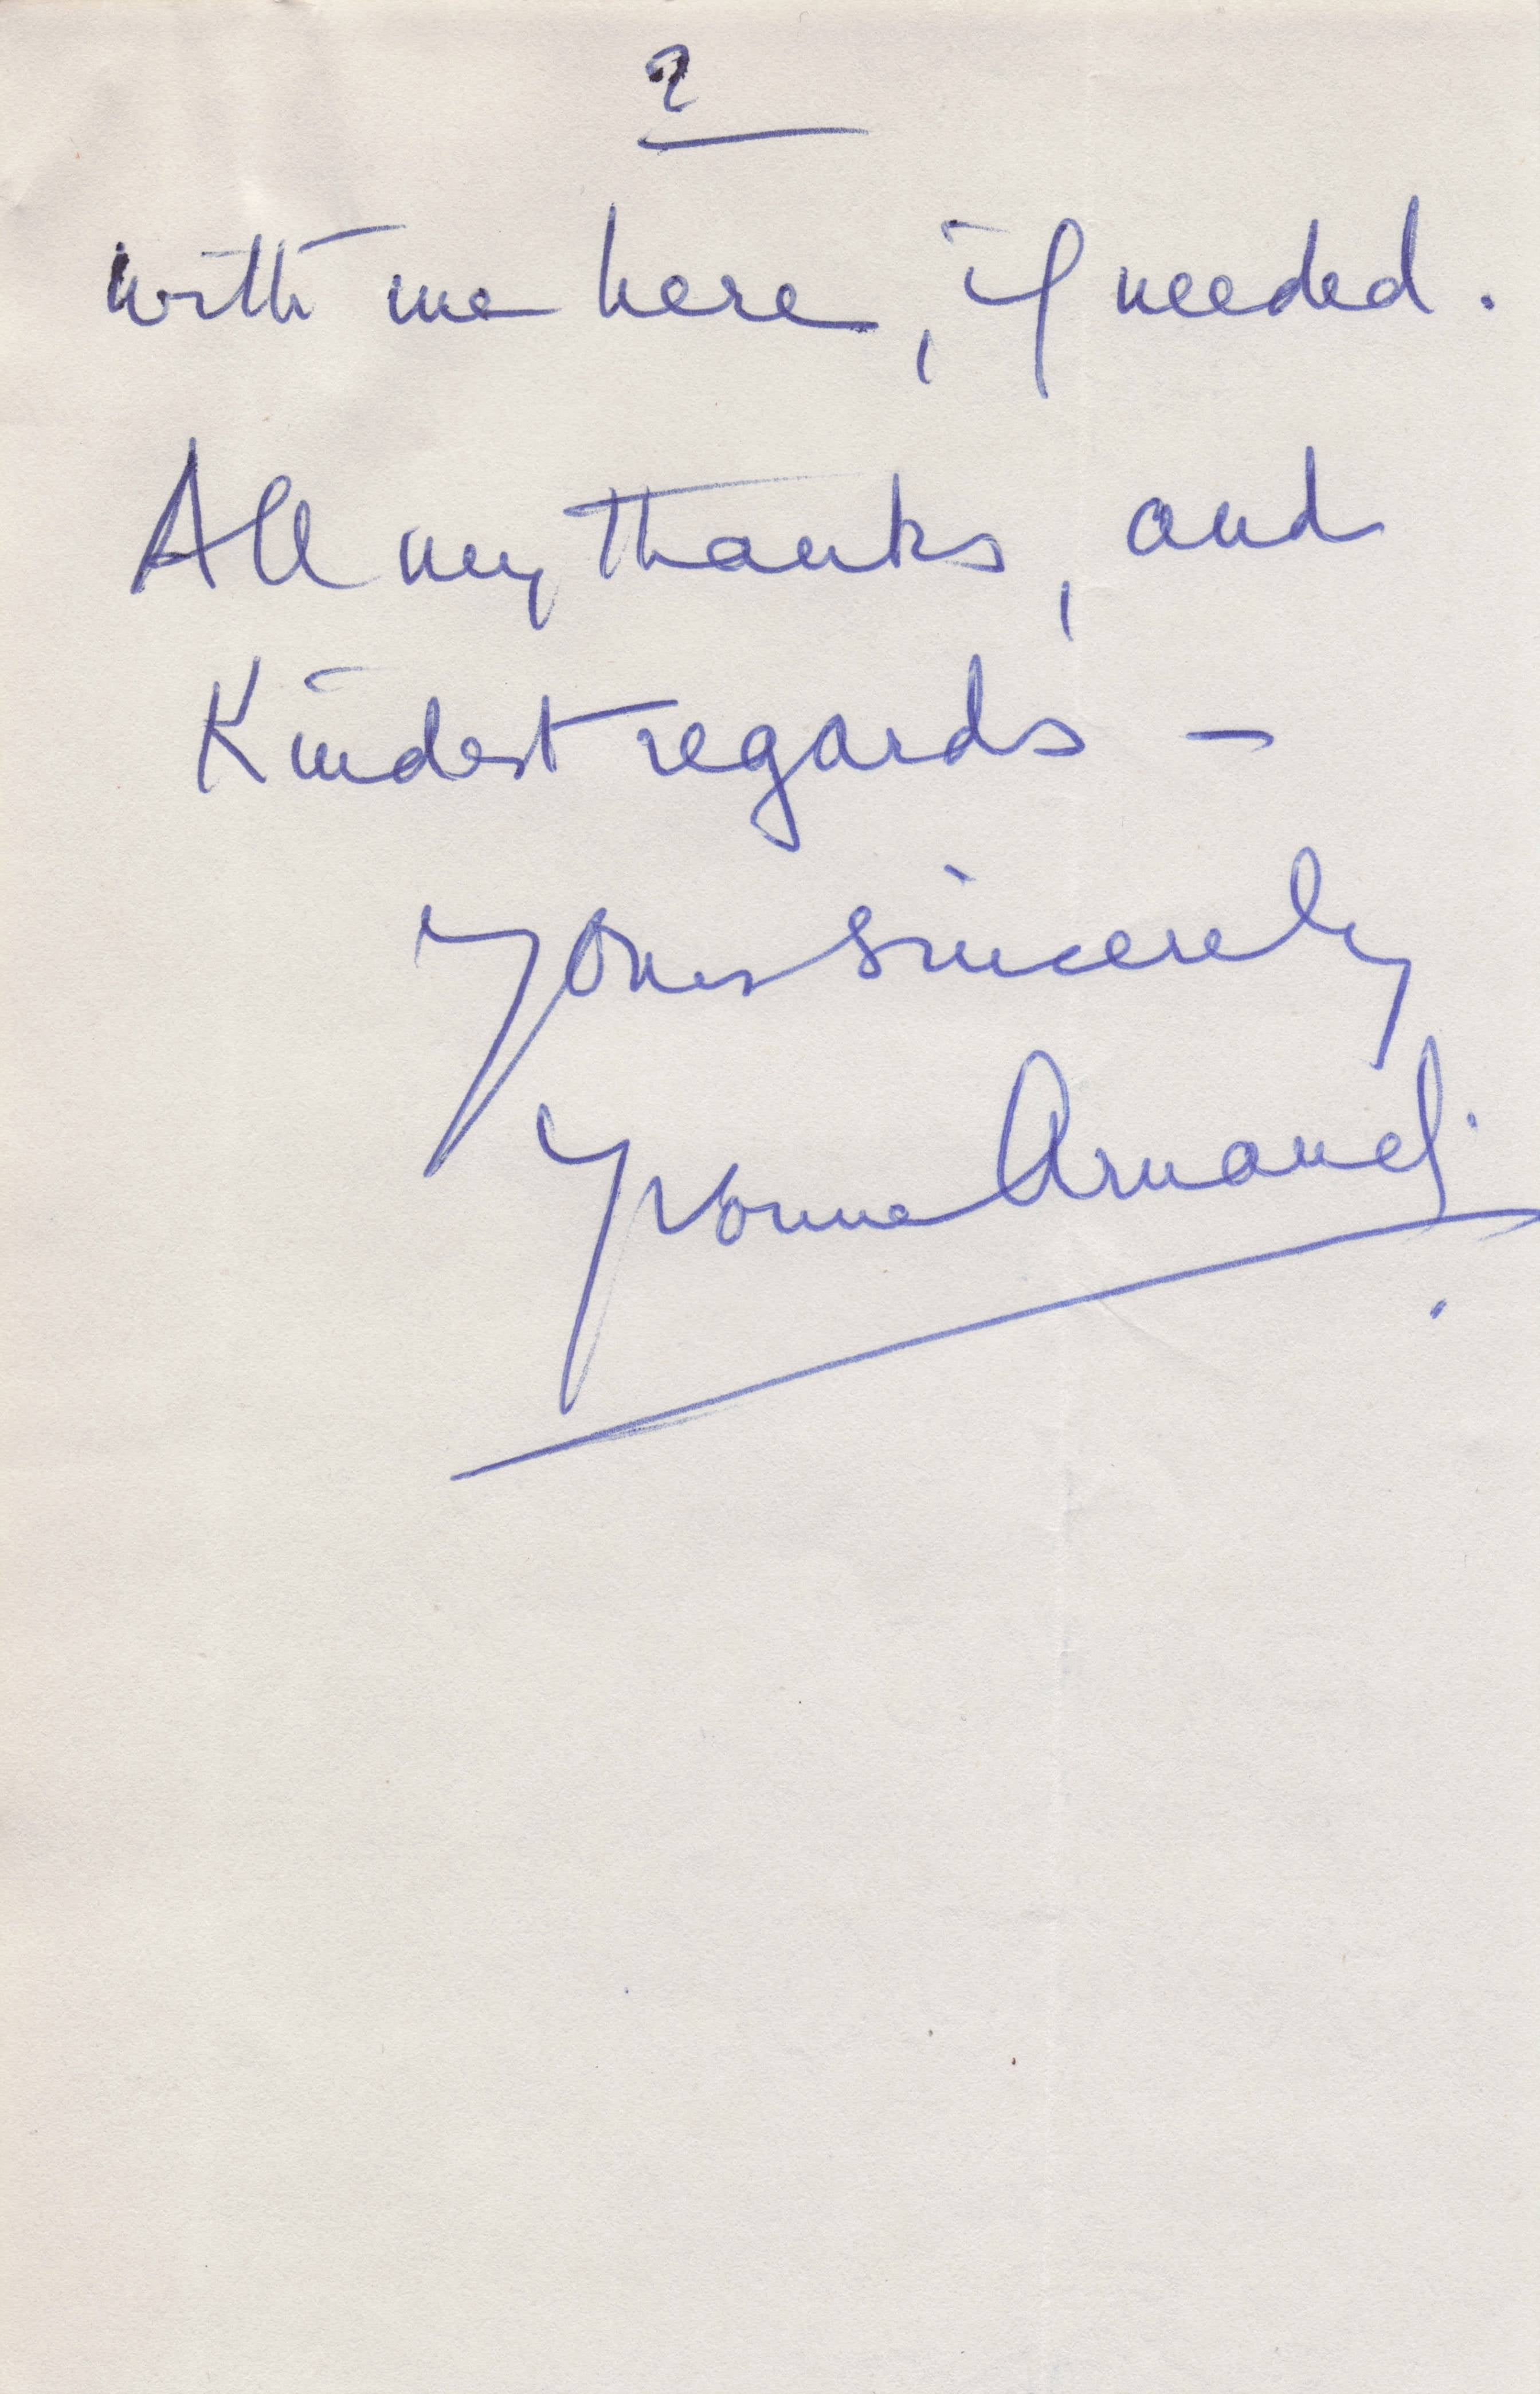 2
with me here, if needed.
All my thanks, and
Kindest regards —
Yours sincerely
Yvonne Arnaud.